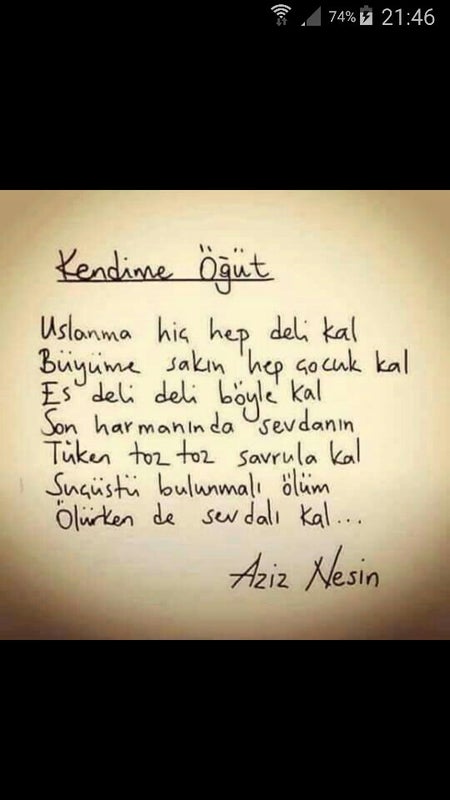 74% 21:46
Kendime Öğüt
Uslanma hiç hep deli kal
Büyüme sakın hep çocuk kal
Es deli deli böyle kal
Son harmanında sevdanın
Tüken toz toz savrula kal
Suçüstü bulunmalı ölüm
Ölürken de sevdalı kal...
Aziz Nesin